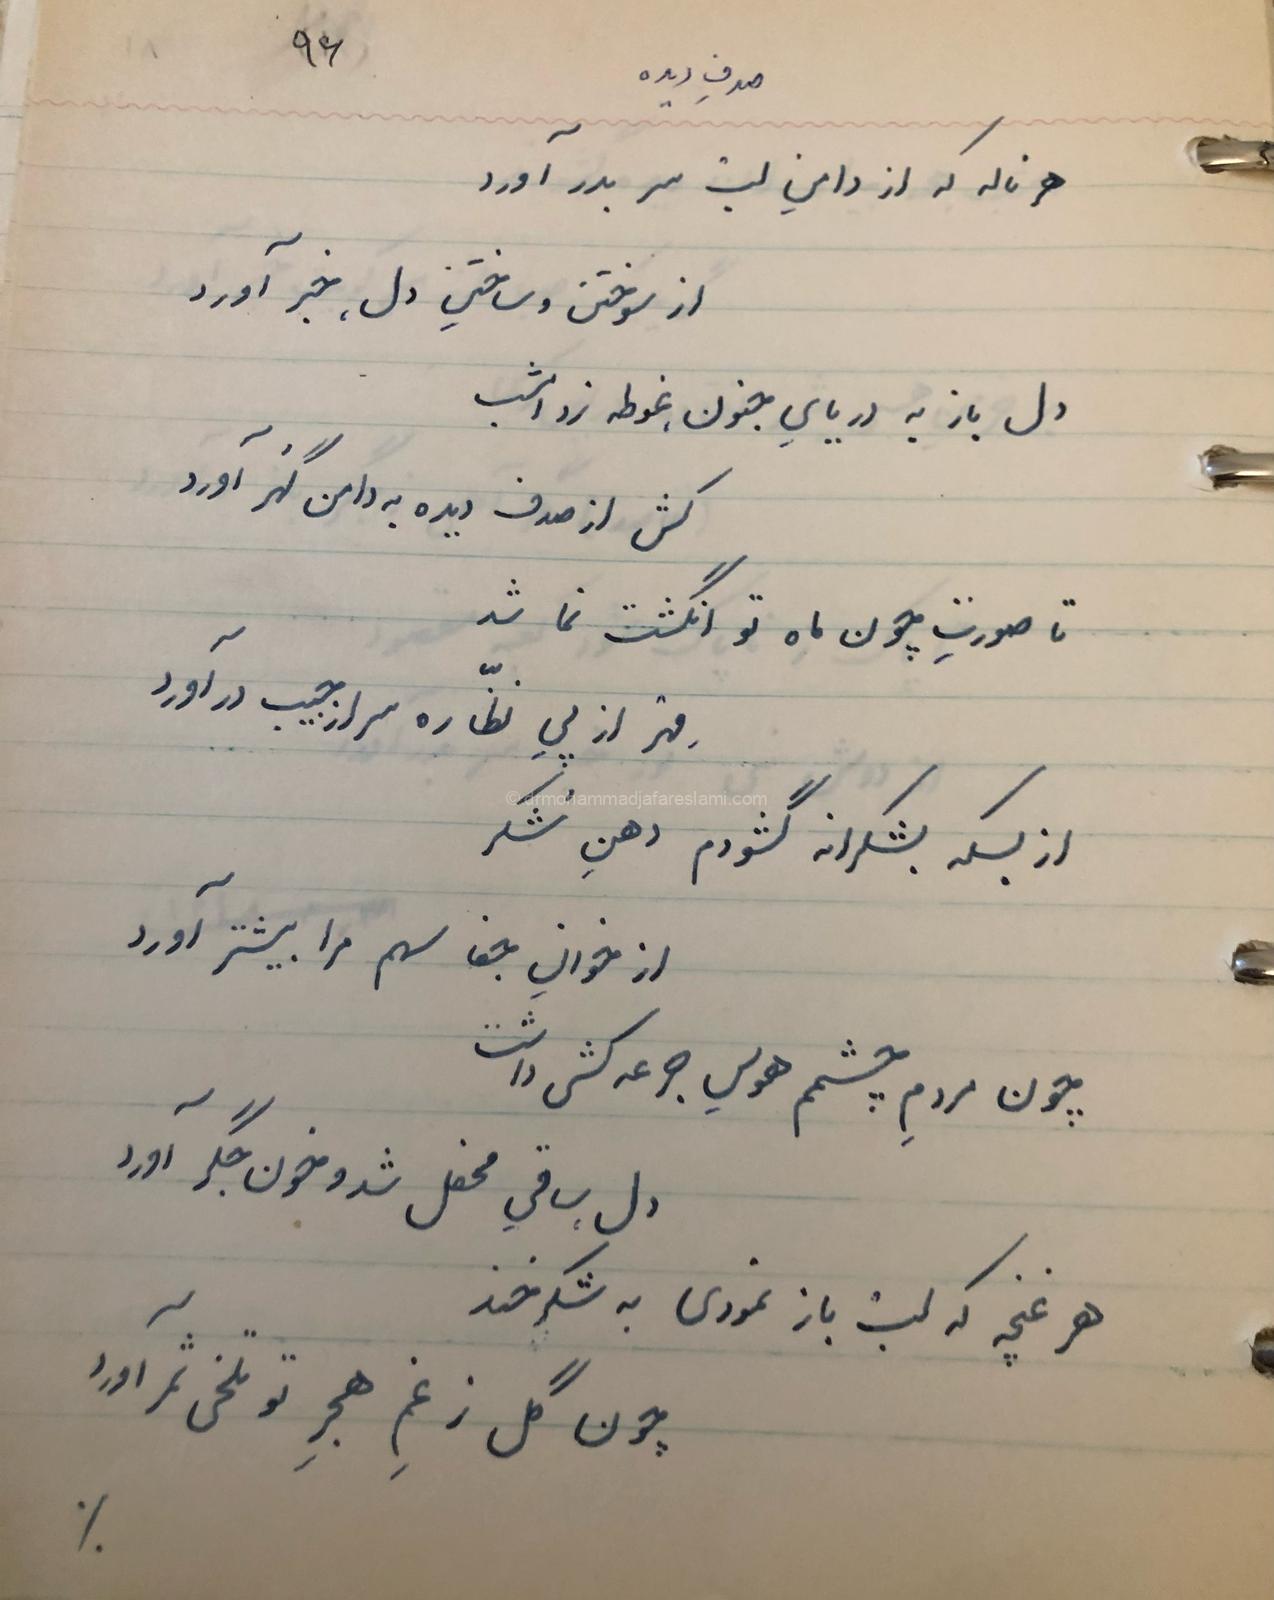 ۹۶
صدفِ دیده
هر ناله که از دامنِ لب سر بدر آورد
از سوختن و ساختنِ دل، خبر آورد
دل باز به دریایِ جنون غوطه زد امشب
کش از صدف دیده به دامن گُهر آورد
تا صورتِ چون ماهِ تو انگشت نما شد
مِهر از پیِ نظّاره سر از جیب درآورد
از بسکه بشکرانه گشودم دهنِ شُکر
از خوانِ جفا سهم مرا بیشتر آورد
چون مردمِ چشمم هوسِ جرعه کشی داشت
دل ساقیِ محفل شد و خون جگر آورد
هر غنچه که لب باز نمودی به شکرخند
چون گل ز غمِ هجرِ تو تلخی ثمر آورد
© drmohammadjafareslami.com